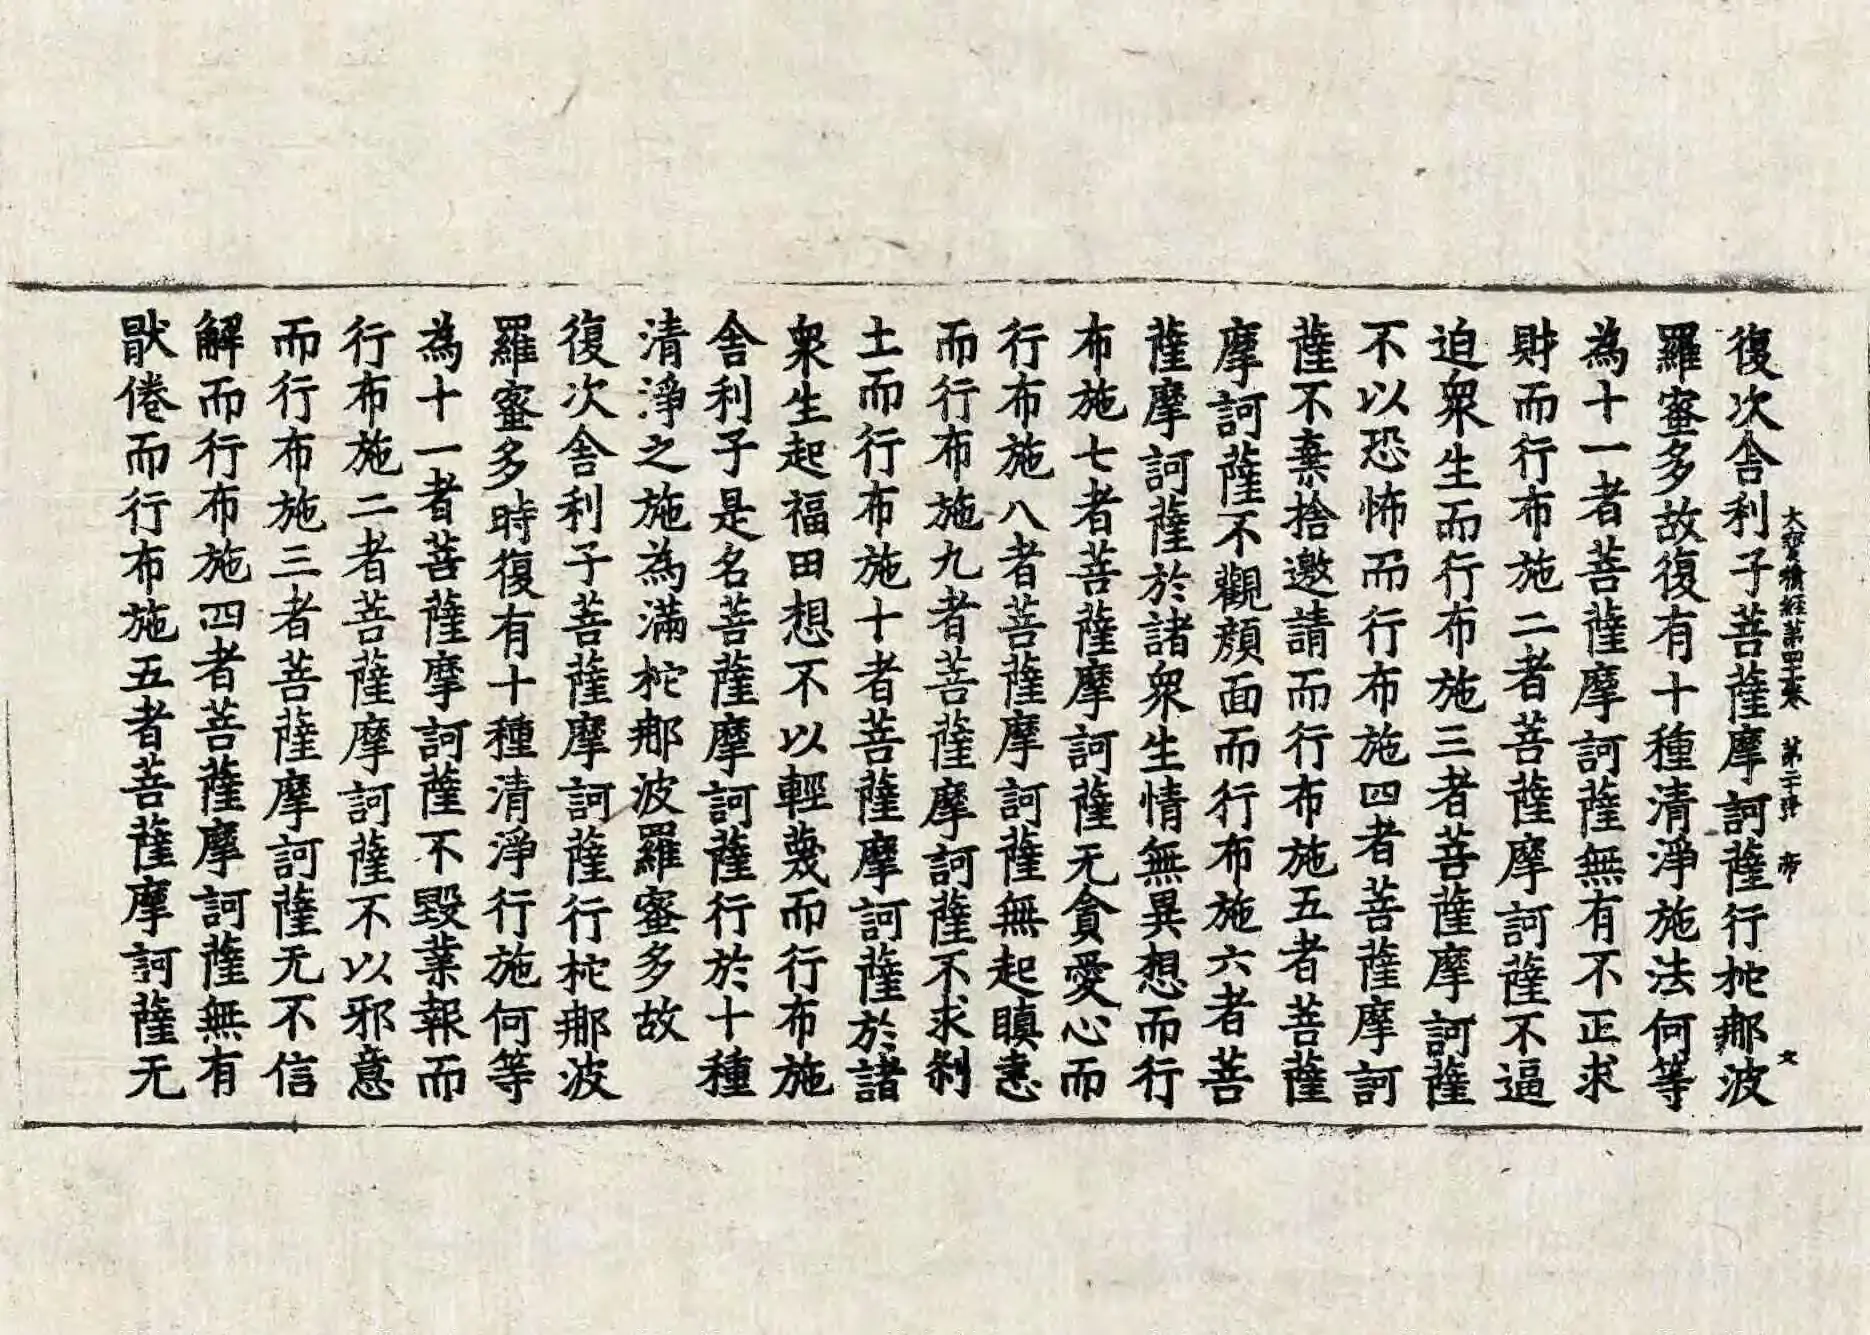 大寶積經第四十一卷 第二十張 帝 文
復次舎利子菩薩摩訶薩行柁那波
羅蜜多故復有十種清淨施法何等
為十一者菩薩摩訶薩無有不正求
財而行布施二者菩薩摩訶薩不逼
迫衆生而行布施三者菩薩摩訶薩
不以恐怖而行布施四者菩薩摩訶
薩不棄捨邀請而行布施五者菩薩
摩訶薩不觀顏面而行布施六者菩
薩摩訶薩於諸衆生情無異想而行
布施七者菩薩摩訶薩无貪愛心而
行布施八者菩薩摩訶薩無起瞋恚
而行布施九者菩薩摩訶薩不求刹
土而行布施十者菩薩摩訶薩於諸
衆生起福田想不以輕蔑而行布施
舎利子是名菩薩摩訶薩行於十種
清淨之施為滿柁那波羅蜜多故
復次舎利子菩薩摩訶薩行柁那波
羅蜜多時復有十種清淨行施何等
為十一者菩薩摩訶薩不毀業報而
行布施二者菩薩摩訶薩不以邪意
而行布施三者菩薩摩訶薩无不信
解而行布施四者菩薩摩訶薩無有
猒倦而行布施五者菩薩摩訶薩无